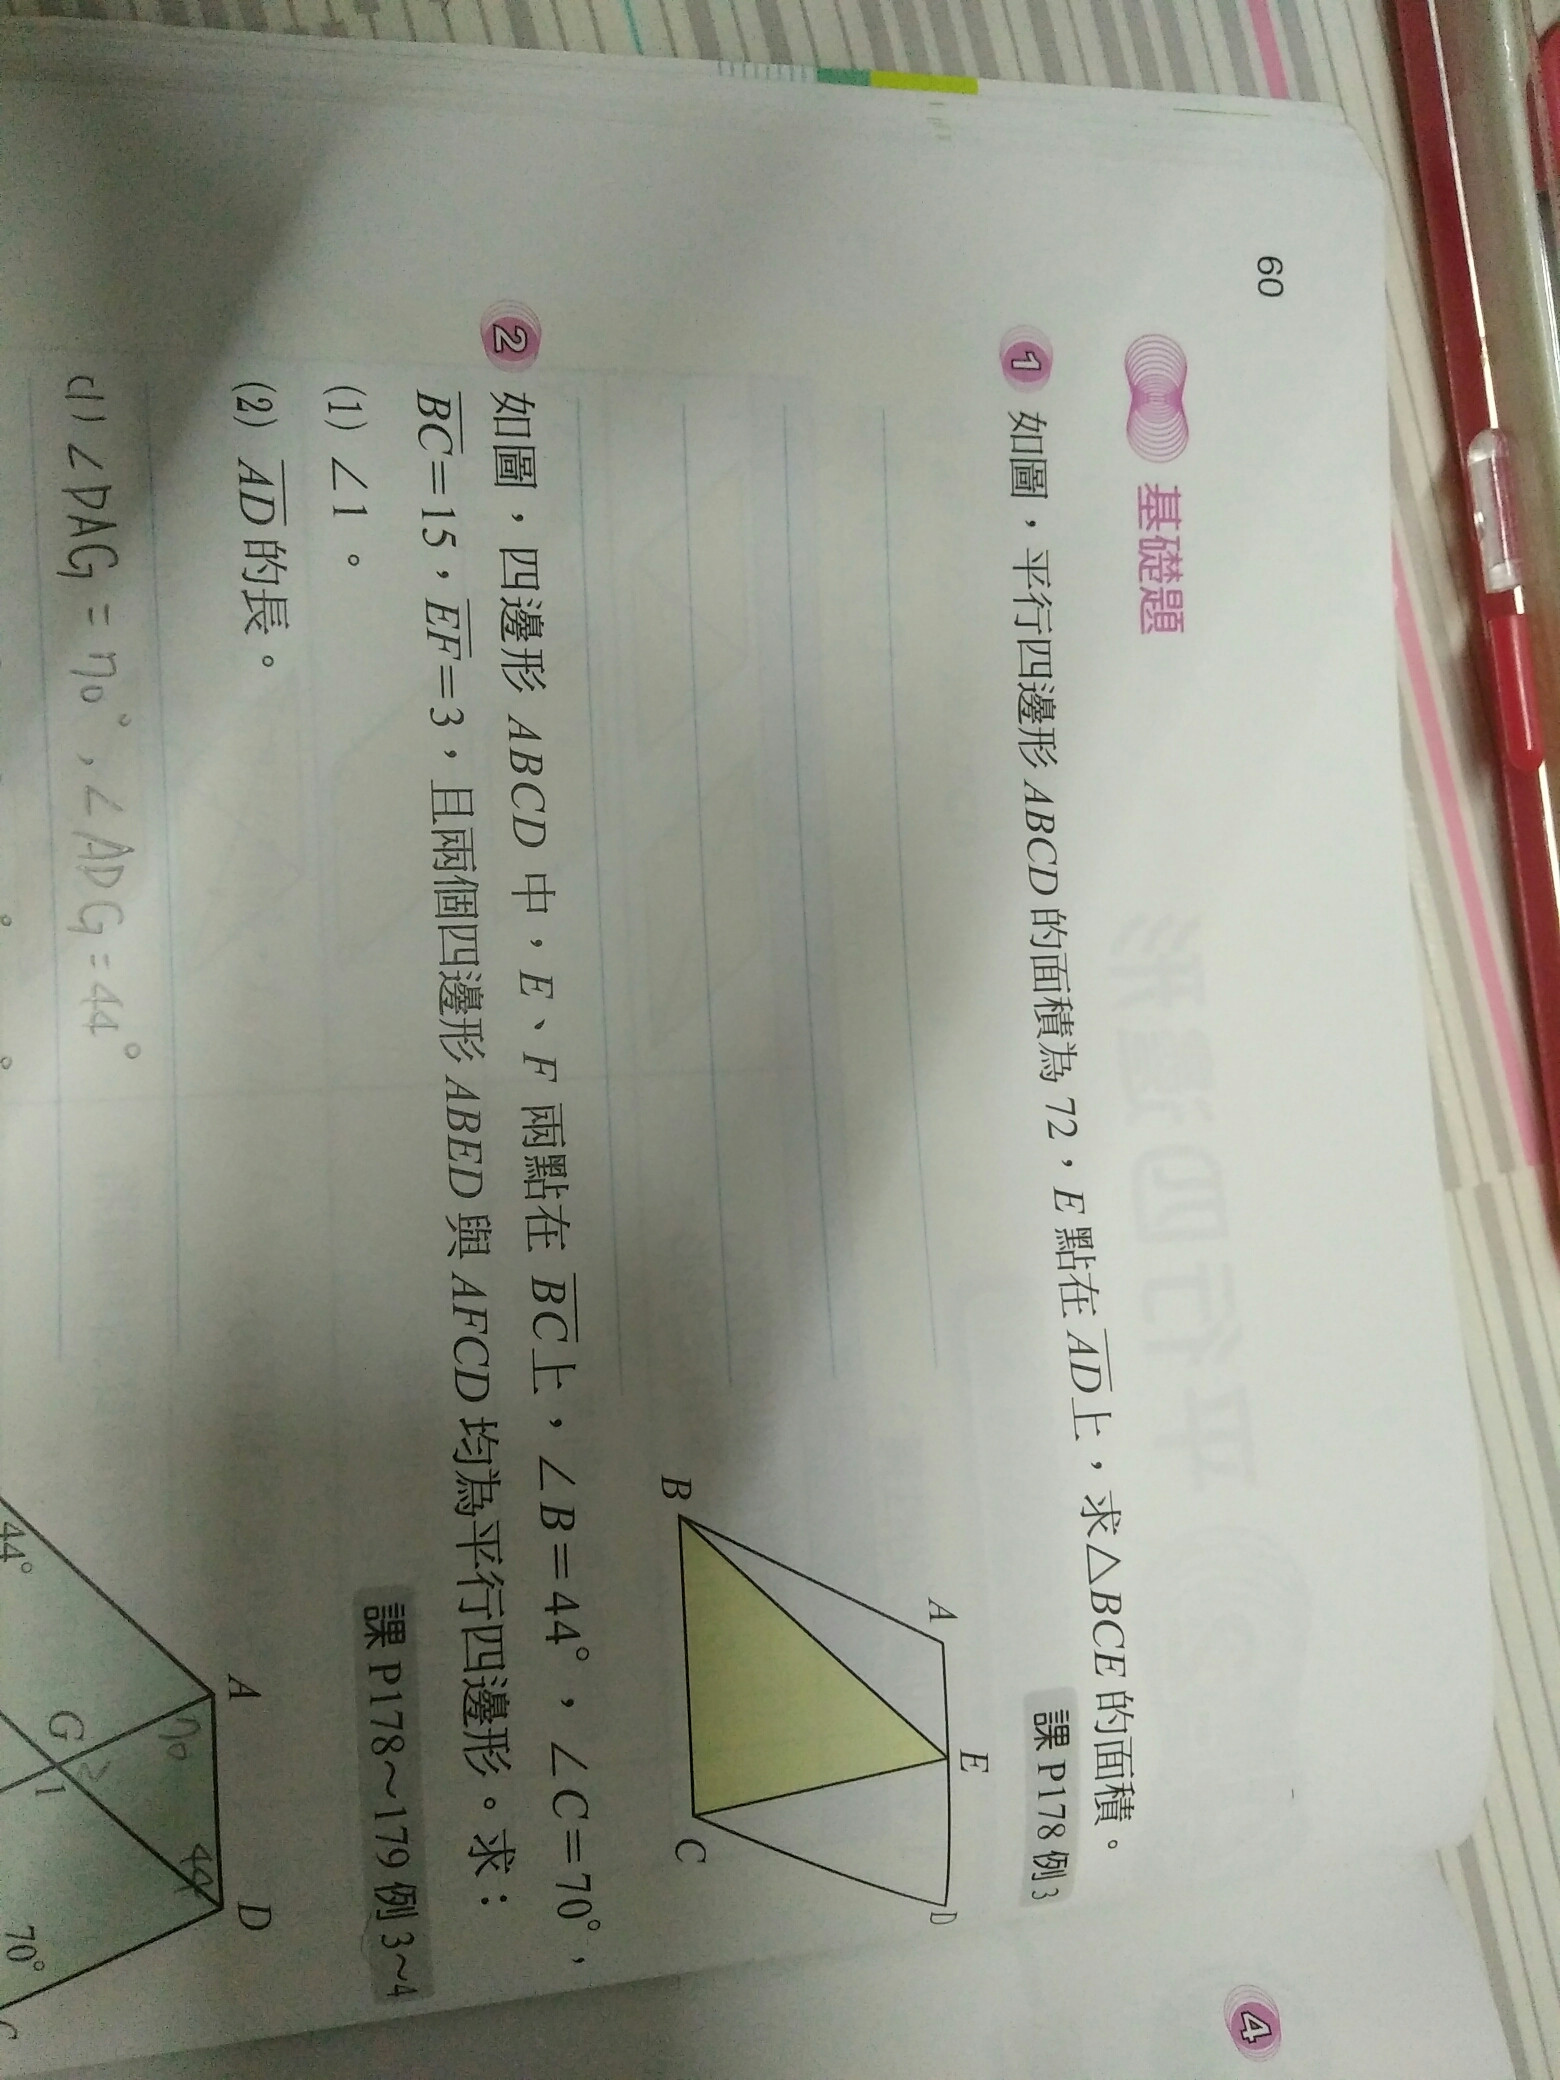 60
基礎題
1 如圖，平行四邊形 ABCD 的面積為 72，E 點在 AD 上，求△BCE 的面積。
課 P178 例 3
A E D
B C
2 如圖，四邊形 ABCD 中，E、F 兩點在 BC 上，∠B=44°，∠C=70°，
BC=15，EF=3，且兩個四邊形 ABED 與 AFCD 均為平行四邊形。求：
(1) ∠1。
課 P178～179 例 3～4
(2) AD 的長。
A D
70 44
G 2
1
44° 70°
C
(1) ∠DAG = 70°, ∠ADG = 44°
4